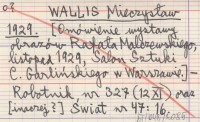 WALLIS Mieczysław
1929. [Omówienie wystawy
obrazów Rafała Malczewskiego,
listopad 1929, Salon Sztuki
C. Garlińskiego w Warszawie.] –
Robotnik nr 327 (12 XI) oraz
[inaczej?] Świat nr 47: 16.